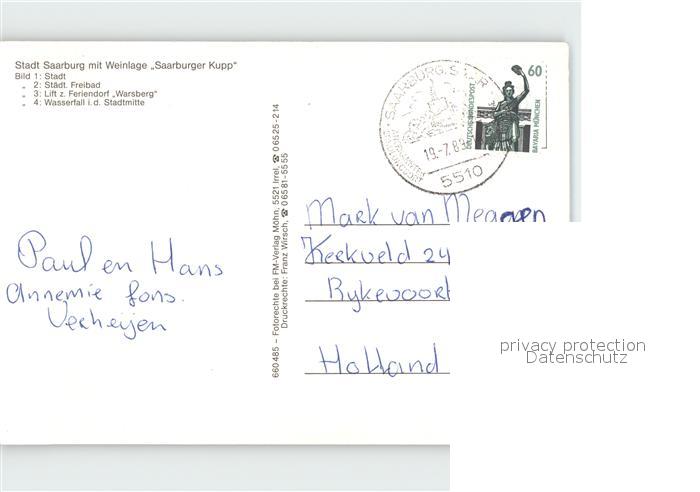 Stadt Saarburg mit Weinlage „Saarburger Kupp“
Bild 1: Stadt
„ 2: Städt. Freibad
„ 3: Lift z. Feriendorf „Warsberg“
„ 4: Wasserfall i. d. Stadtmitte
660485 – Fotorechte bei FM-Verlag Möhn, 5521 Irrel, ☎ 06525-214
Druckrechte: Franz Wirsch, ☎ 06581-5555
SAARBURG, SAAR
19.-7.89
5510
60
DEUTSCHE BUNDESPOST
BAVARIA MÜNCHEN
Paul en Hans
Annemie fons.
Verheijen
Mark van Meggen
Kerkveld 24
Rykevoort
Holland
privacy protection
Datenschutz